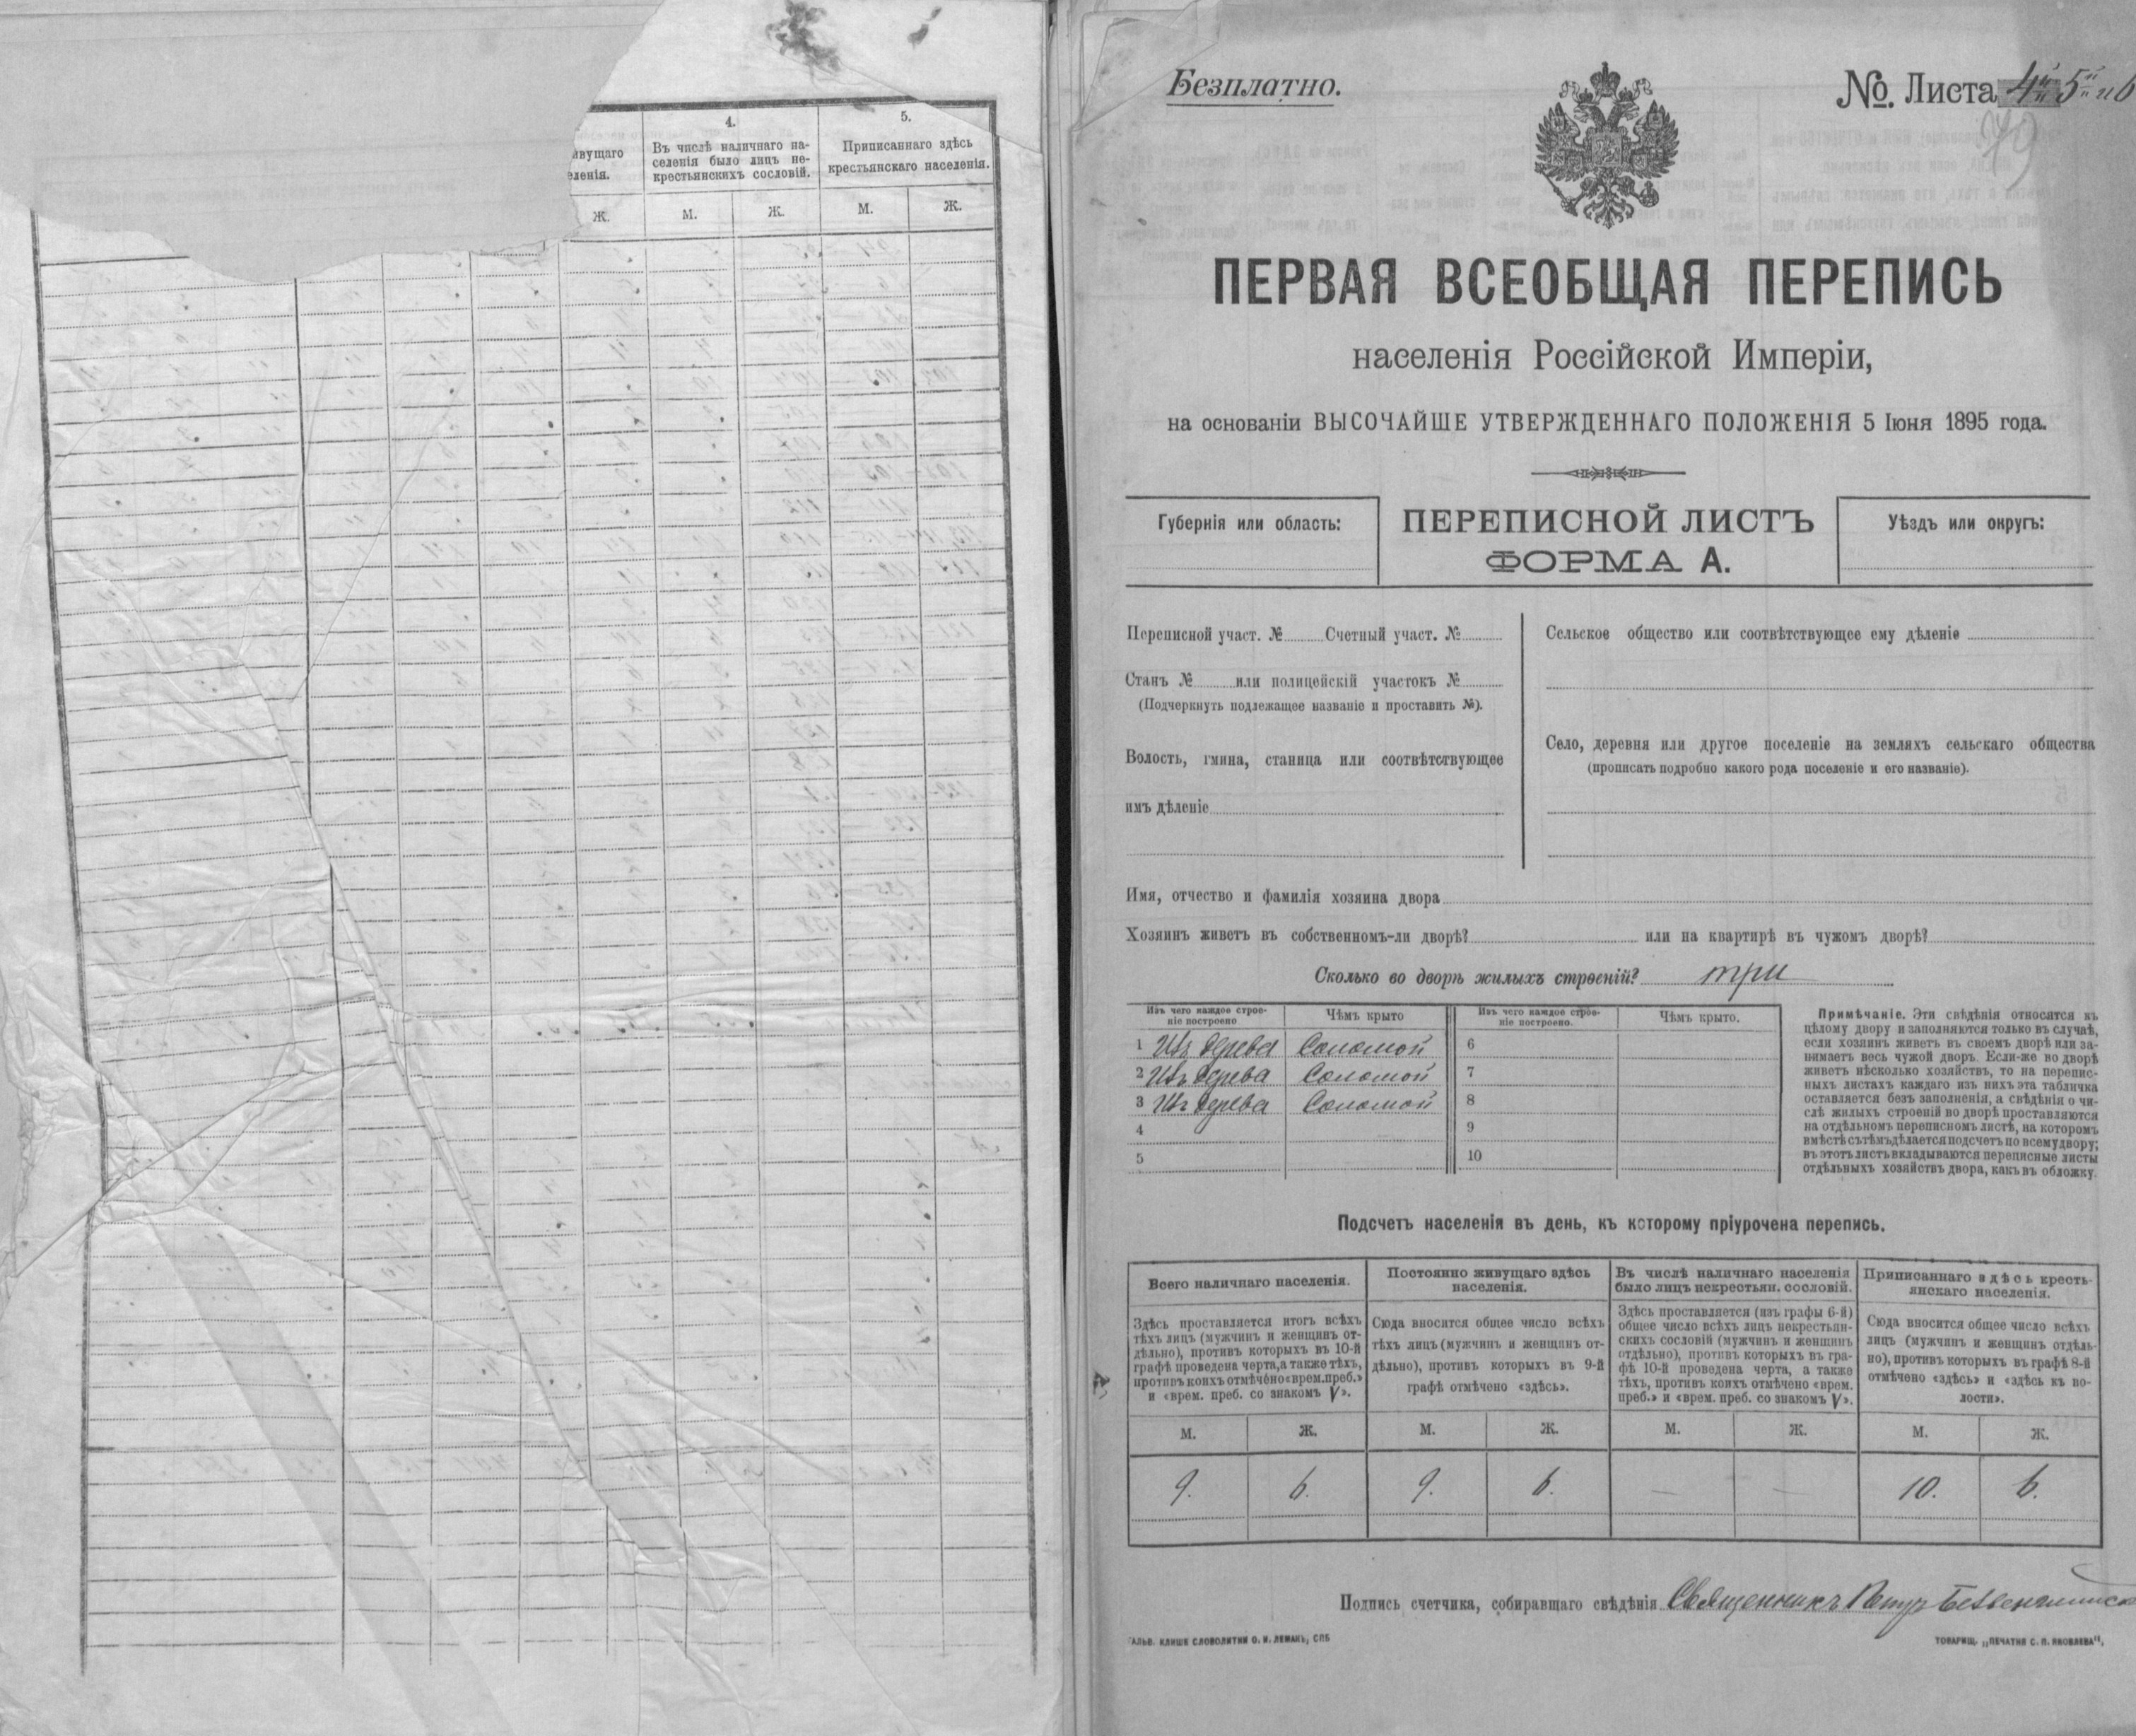 ивущаго
еленія.
4.
Въ числѣ наличнаго на-
селенія было лицъ не-
крестьянскихъ сословій.
5.
Приписаннаго здѣсь
крестьянскаго населенія.
Ж.
М.
Ж.
М.
Ж.
Безплатно.
№. Листа 4й 5й и 6
ПЕРВАЯ ВСЕОБЩАЯ ПЕРЕПИСЬ
населенія Россійской Имперіи,
на основаніи ВЫСОЧАЙШЕ УТВЕРЖДЕННАГО ПОЛОЖЕНІЯ 5 Іюня 1895 года.
Губернія или область:
ПЕРЕПИСНОЙ ЛИСТЪ
ФОРМА А.
Уѣздъ или округъ:
Переписной участ. № Счетный участ. №
Станъ № или полицейскій участокъ №
(Подчеркнуть подлежащее названіе и проставить №).
Волость, гмина, станица или соотвѣтствующее
имъ дѣленіе
Сельское общество или соотвѣтствующее ему дѣленіе
Село, деревня или другое поселеніе на земляхъ сельскаго общества
(прописать подробно какого рода поселеніе и его названіе).
Имя, отчество и фамилія хозяина двора
Хозяинъ живетъ въ собственномъ-ли дворѣ? или на квартирѣ въ чужомъ дворѣ?
Сколько во дворѣ жилыхъ строеній? три
Изъ чего каждое строе-
ніе построено
Чѣмъ крыто
Изъ чего каждое строе-
ніе построено.
Чѣмъ крыто.
1 Изъ дерева Соломой 6
2 Изъ дерева Соломой 7
3 Изъ дерева Соломой 8
4 9
5 10
Примѣчаніе. Эти свѣдѣнія относятся къ
цѣлому двору и заполняются только въ случаѣ,
если хозяинъ живетъ въ своемъ дворѣ или за-
нимаетъ весь чужой дворъ. Если-же во дворѣ
живетъ нѣсколько хозяйствъ, то на перепис-
ныхъ листахъ каждаго изъ нихъ эта табличка
оставляется безъ заполненія, а свѣдѣнія о чи-
слѣ жилыхъ строеній во дворѣ проставляются
на отдѣльномъ переписномъ листѣ, на которомъ
вмѣстѣ съ тѣмъ дѣлается подсчетъ по всему двору;
въ этотъ листъ вкладываются переписные листы
отдѣльныхъ хозяйствъ двора, какъ въ обложку.
Подсчетъ населенія въ день, къ которому пріурочена перепись.
Всего наличнаго населенія.
Постоянно живущаго здѣсь
населенія.
Въ числѣ наличнаго населенія
было лицъ некрестьян. сословій.
Приписаннаго здѣсь кресть-
янскаго населенія.
Здѣсь проставляется итогъ всѣхъ
тѣхъ лицъ (мужчинъ и женщинъ от-
дѣльно), противъ которыхъ въ 10-й
графѣ проведена черта, а также тѣхъ,
противъ коихъ отмѣчено «врем. преб.»
и «врем. преб. со знакомъ V».
Сюда вносится общее число всѣхъ
тѣхъ лицъ (мужчинъ и женщинъ от-
дѣльно), противъ которыхъ въ 9-й
графѣ отмѣчено «здѣсь».
Здѣсь проставляется (изъ графы 6-й)
общее число всѣхъ лицъ некрестьян-
скихъ сословій (мужчинъ и женщинъ
отдѣльно), противъ которыхъ въ гра-
фѣ 10-й проведена черта, а также
тѣхъ, противъ коихъ отмѣчено «врем.
преб.» и «врем. преб. со знакомъ V».
Сюда вносится общее число всѣхъ
лицъ (мужчинъ и женщинъ отдѣль-
но), противъ которыхъ въ графѣ 8-й
отмѣчено «здѣсь» и «здѣсь къ во-
лости».
М. Ж. М. Ж. М. Ж. М. Ж.
9. 6. 9. 6. — — 10. 6.
Подпись счетчика, собиравшаго свѣдѣнія Священникъ Петръ
ГАЛЬВ. КЛИШЕ СЛОВОЛИТНИ О. И. ЛЕМАНЪ, СПБ
ТОВАРИЩ. „ПЕЧАТНЯ С. П. ЯКОВЛЕВА",